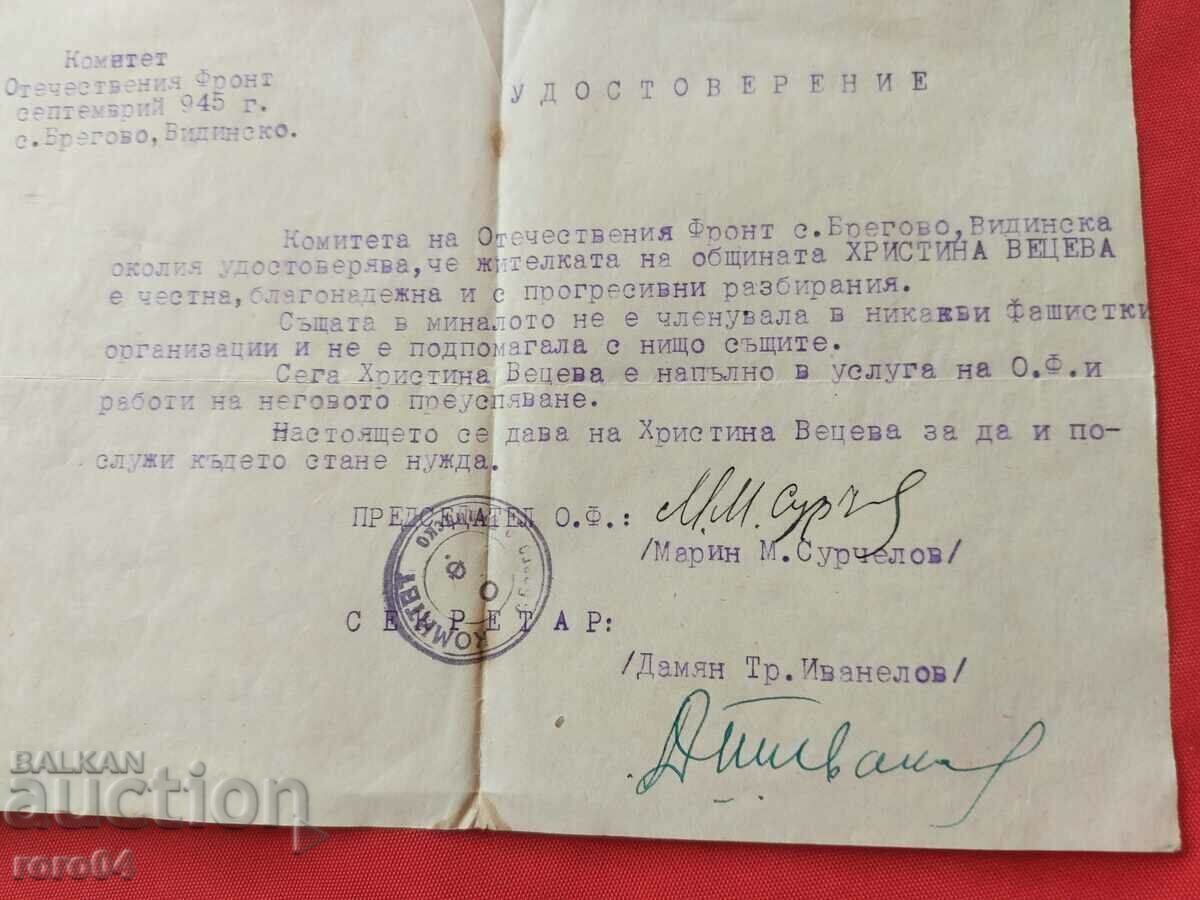 Комитет
Отечествения Фронт
септемврий 945 г.
с.Брегово,Видинско.
УДОСТОВЕРЕНИЕ
Комитета на Отечествения Фронт с.Брегово,Видинска
околия удостоверява,че жителката на общината ХРИСТИНА ВЕЦЕВА
е честна,благонадежна и с прогресивни разбирания.
Същата в миналото не е членувала в никакви фашистки
организации и не е подпомагала с нищо същите.
Сега Христина Вецева е напълно в услуга на О.Ф.и
работи на неговото преуспяване.
Настоящето се дава на Христина Вецева за да и по-
служи където стане нужда.
ПРЕДСЕДАТЕЛ О.Ф.: М.М.Сурч
/Марин М.Сурчелов/
КОМИТЕТ
О.Ф.
СЕКРЕТАР:
/Дамян Тр.Иванелов/
BALKAN
auction
roro04